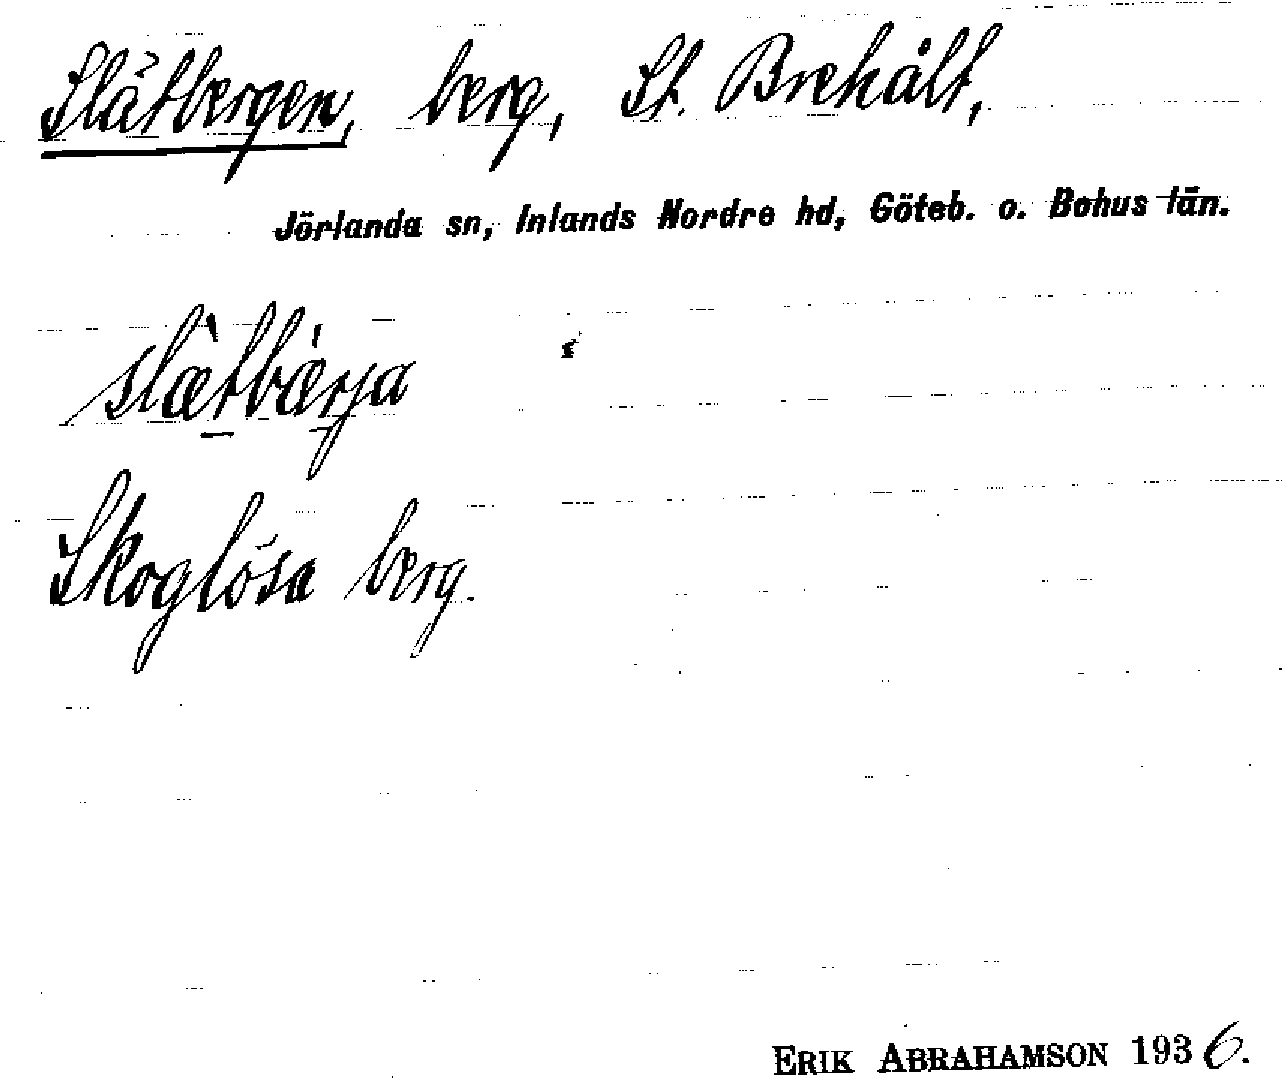 Slätbergen, berg, St. Brehålt,
Jörlanda sn, Inlands Nordre hd, Göteb. o. Bohus län.
slæ̀tbær̀ja
Skoglösa berg.
ERIK ABRAHAMSON 1936.